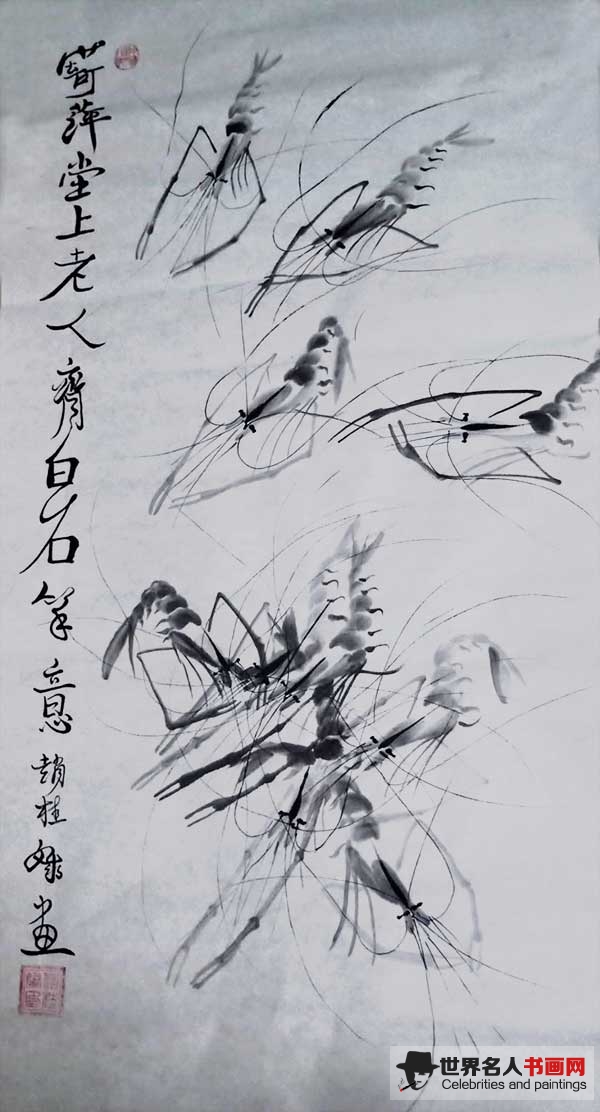 寄萍堂上老人齊白石筆意 趙桂畫
世界名人书画网
Celebrities and paintings